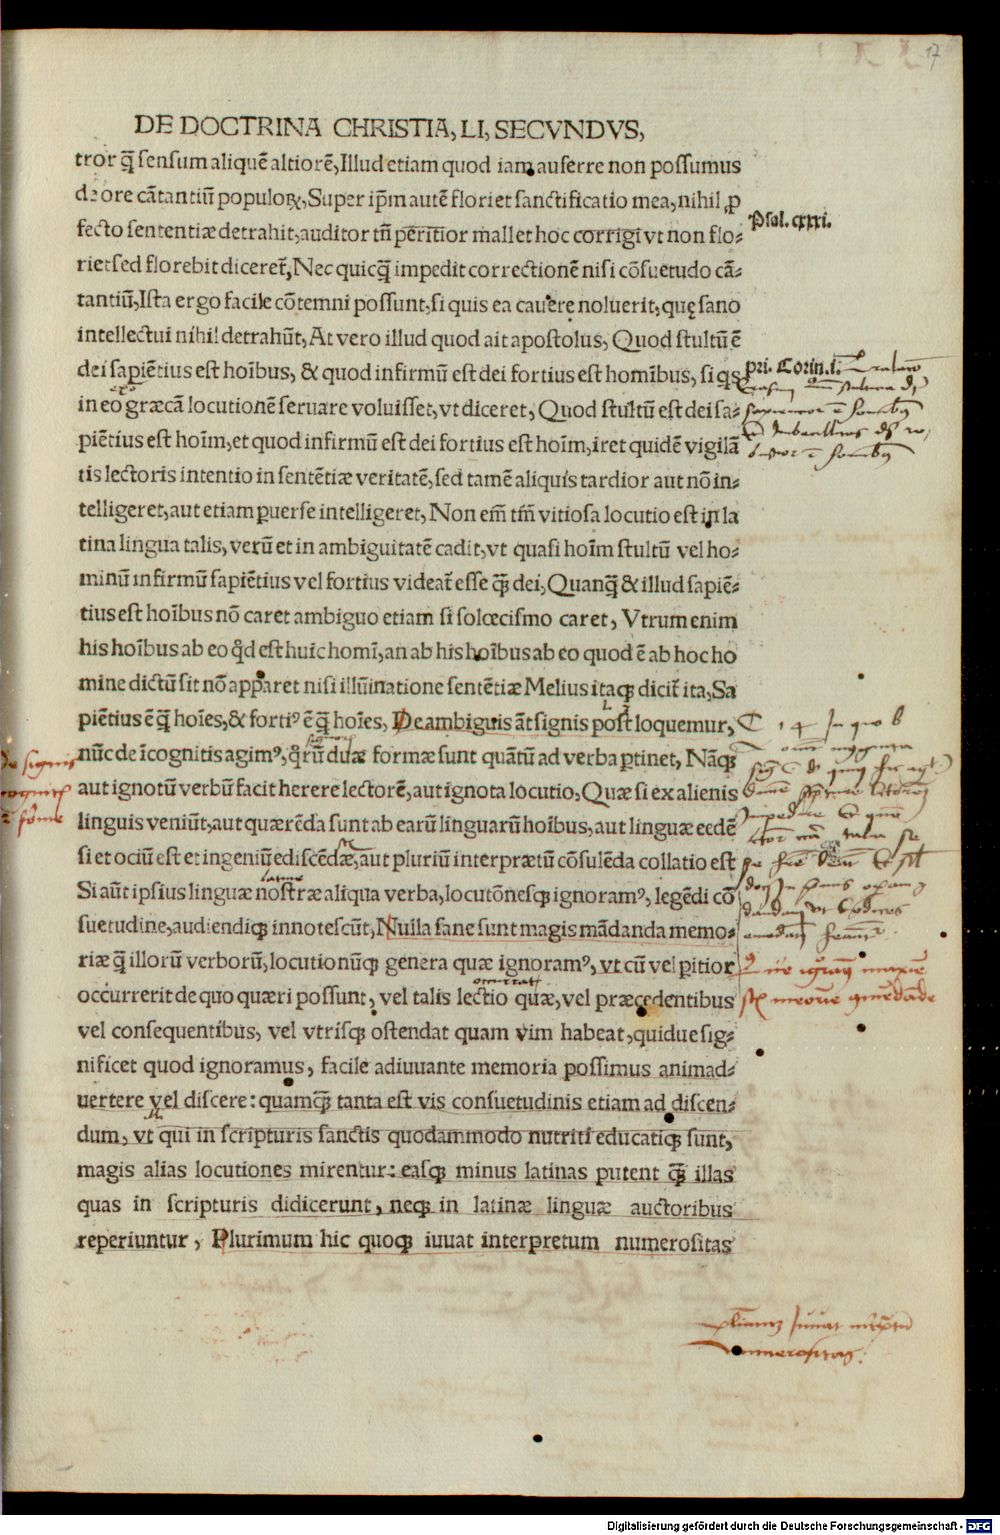 17
DE DOCTRINA CHRISTIA, LI, SECVNDVS,
tror q̃ sensum aliquẽ altiorẽ, Illud etiam quod iam auferre non possumus
de ore cãtantiũ populoꝝ, Super ip̃m autẽ floriet sanctificatio mea, nihil ꝓ
Psal. cxxxi.
fecto sententiæ detrahit, auditor tñ peritior mallet hoc corrigi vt non flo⸗
riet sed florebit diceret̃, Nec quicq̃ impedit correctionẽ nisi cõsuetudo cã⸗
tantiũ, Ista ergo facile cõtemni possunt, si quis ea cauere noluerit, quę sano
intellectui nihil detrahũt, At vero illud quod ait apostolus, Quod stultũ ẽ
dei sapiẽtius est hoĩbus, & quod infirmũ est dei fortius est homĩbus, si q̃s
pri. Corin. i.
in eo græcã locutionẽ seruare voluisset, vt diceret, Quod stultũ est dei sa⸗
piẽtius est hoĩm, et quod infirmũ est dei fortius est hoĩm, iret quidẽ vigilã
tis lectoris intentio in sentẽtiæ veritatẽ, sed tamẽ aliquis tardior aut nõ in⸗
telligeret, aut etiam ꝑuerse intelligeret, Non em̃ tm̃ vitiosa locutio est in la
tina lingua talis, verũ et in ambiguitatẽ cadit, vt quasi hoĩm stultũ vel ho⸗
minũ infirmũ sapiẽtius vel fortius videat̃ esse q̃ꝫ dei, Quanq̃ & illud sapiẽ⸗
tius est hoĩbus nõ caret ambiguo etiam si solœcismo caret, Vtrum enim
his hoĩbus ab eo q̃d est huic homĩ, an ab his hoĩbus ab eo quod ẽ ab hoc ho
mine dictũ sit nõ apparet nisi illũinatione sentẽtiæ Melius itaqꝫ dicit̃ ita, Sa
piẽtius ẽ q̃ hoĩes, & forti⁹ ẽ q̃ hoĩes, De ambiguis ãt signis post loquemur,
nũc de ĩcognitis agim⁹, q̃rũ duæ formæ sunt quãtũ ad verba ꝑtinet, Nãqꝫ
aut ignotũ verbũ facit herere lectorẽ, aut ignota locutio, Quæ si ex alienis
linguis veniũt, aut quærẽda sunt ab earũ linguarũ hoĩbus, aut linguæ eedẽ
si et ociũ est et ingeniũ ediscẽdæ, aut pluriũ interprætũ cõsulẽda collatio est
Si aũt ipsius linguæ nostræ aliqua verba, locutõnesqꝫ ignoram⁹, legẽdi cõ
suetudine, audiendiqꝫ innotescũt, Nulla sane sunt magis mãdanda memo⸗
riæ q̃ illorũ verborũ, locutionũqꝫ genera quæ ignoram⁹, vt cũ vel ꝑitior
occurrerit de quo quæri possunt, vel talis lectio quæ, vel præcedentibus
vel consequentibus, vel vtrisqꝫ ostendat quam vim habeat, quidue sig⸗
nificet quod ignoramus, facile adiuuante memoria possimus animad⸗
uertere vel discere: quamq̃ꝫ tanta est vis consuetudinis etiam ad discen⸗
dum, vt qui in scripturis sanctis quodammodo nutriti educatiqꝫ sunt,
magis alias locutiones mirentur: easqꝫ minus latinas putent q̃ꝫ illas
quas in scripturis didicerunt, neqꝫ in latinæ linguæ auctoribus
reperiuntur, Plurimum hic quoqꝫ iuuat interpretum numerositas
Digitalisierung gefördert durch die Deutsche Forschungsgemeinschaft - DFG